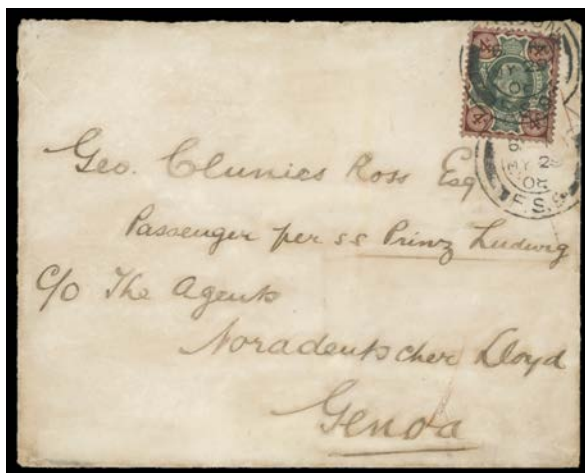 Geo. Clunies Ross Esq
Passenger per ss Prinz Ludwig
C/o The Agents
Noradeutscher Lloyd
Genoa
4
4
4
MY 29
08
F.S.